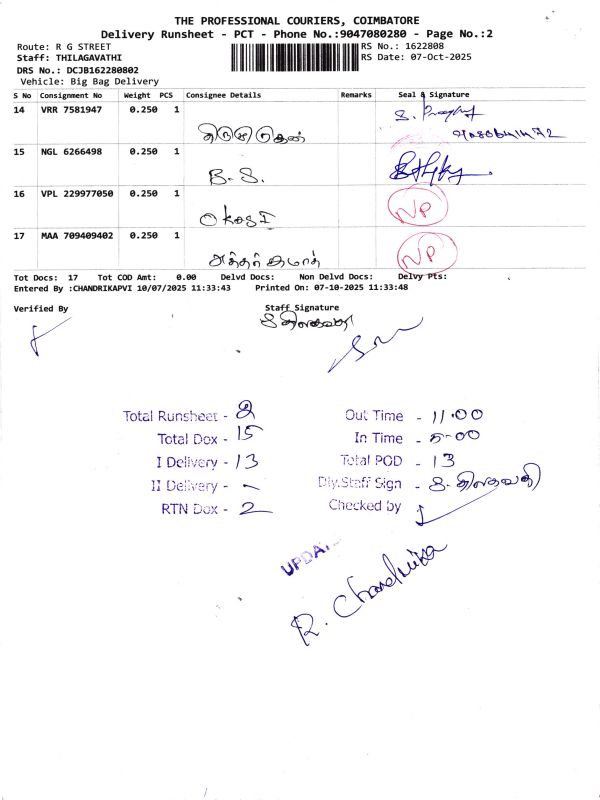 THE PROFESSIONAL COURIERS, COIMBATORE
Delivery Runsheet - PCT - Phone No.:9047080280 - Page No.:2
Route: R G STREET RS No.: 1622808
Staff: THILAGAVATHI RS Date: 07-Oct-2025
DRS No.: DCJB162280802
Vehicle: Big Bag Delivery
S No Consignment No Weight PCS Consignee Details Remarks Seal & Signature
14 VRR 7581947 0.250 1
15 NGL 6266498 0.250 1
B. S.
16 VPL 229977050 0.250 1
NP
17 MAA 709409402 0.250 1
NP
Tot Docs: 17 Tot COD Amt: 0.00 Delvd Docs: Non Delvd Docs: Delvy Pts:
Entered By :CHANDRIKAPVI 10/07/2025 11:33:43 Printed On: 07-10-2025 11:33:48
Verified By Staff Signature
Total Runsheet - 2 Out Time - 11.00
Total Dox - 15 In Time - 5-00
I Delivery - 13 Total POD - 13
II Delivery - - Dly.Staff Sign -
RTN Dox - 2 Checked by
R. Chandrika